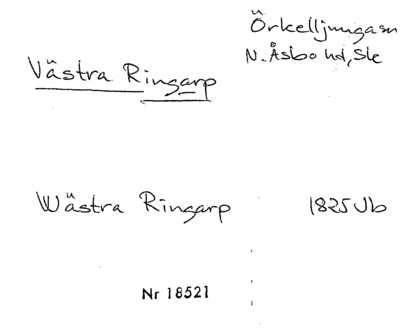 Örkelljunga sn
N. Åsbo hd, Sk
Västra Ringarp
Wästra Ringarp 1825 Jb
Nr 18521